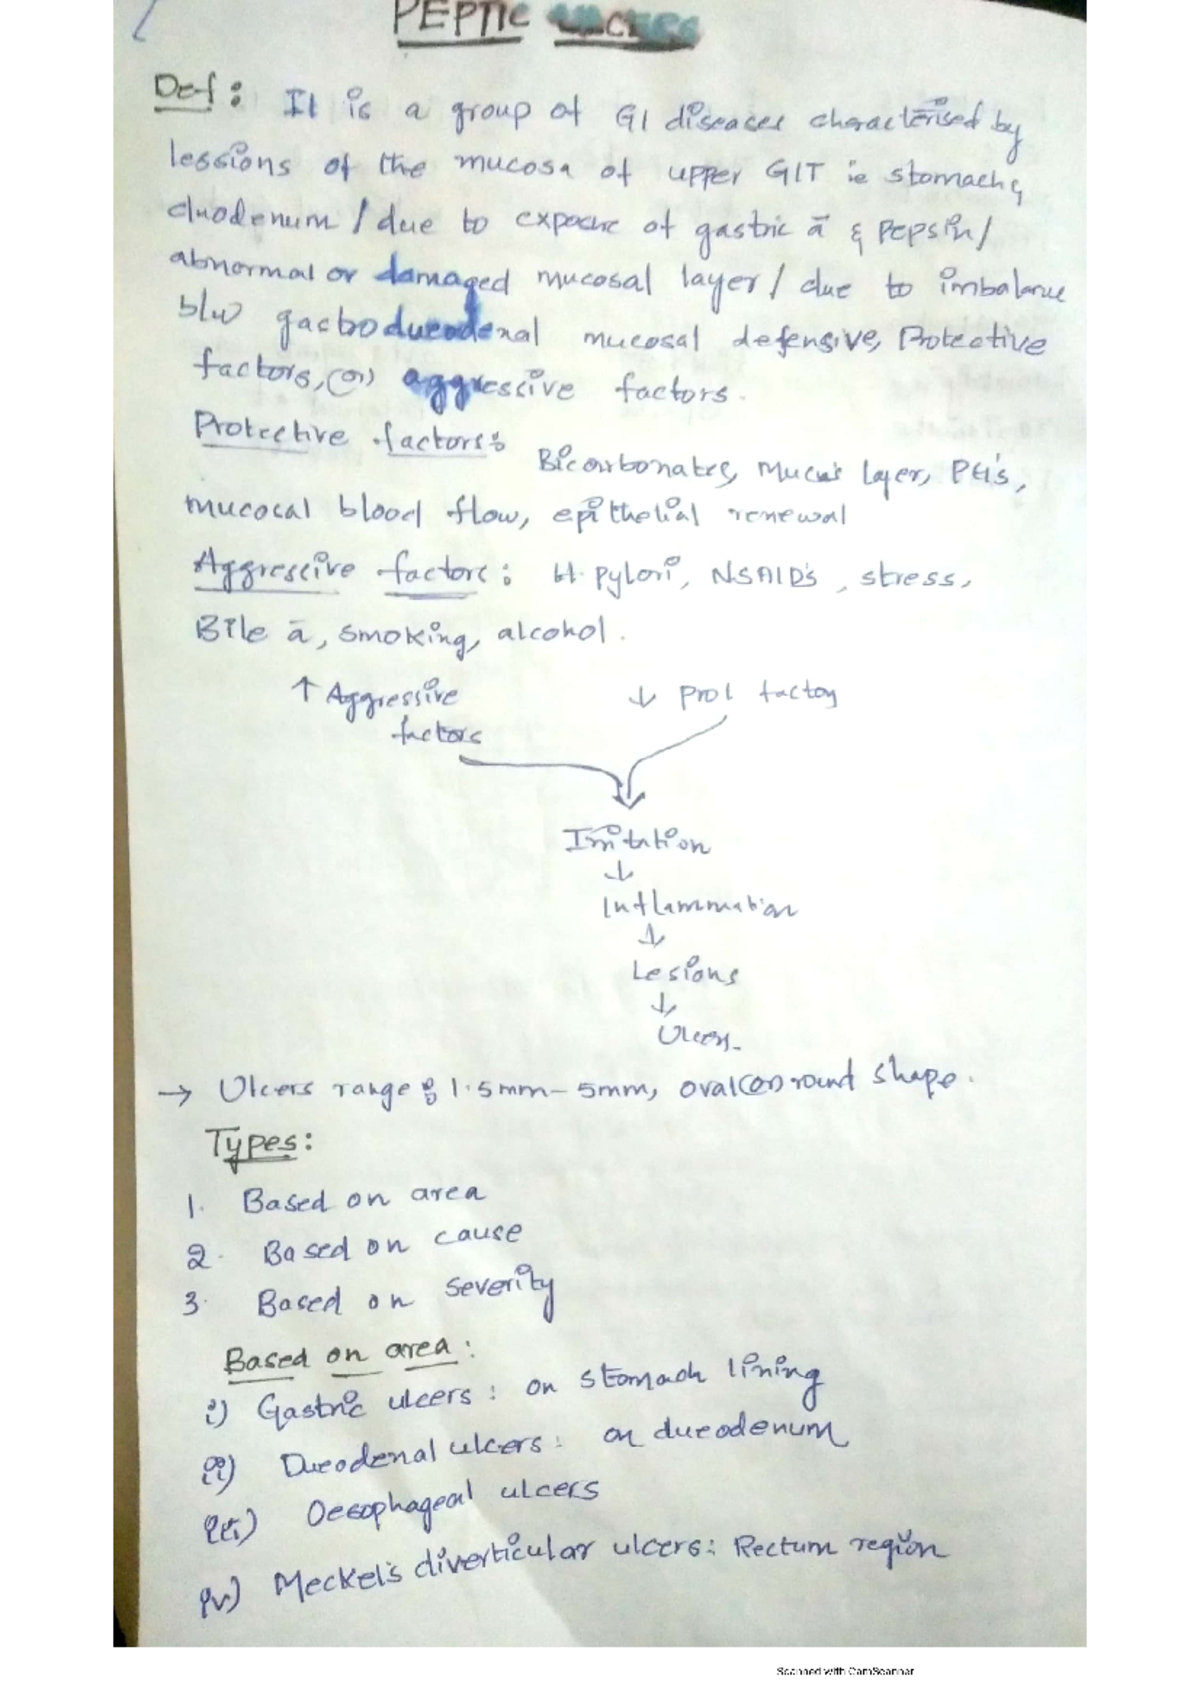 PEPTIC ULCERS
Def: It is a group of GI diseases characterised by
lessions of the mucosa of upper GIT ie stomach &
duodenum / due to expocure of gastric ā & Pepsin /
abnormal or damaged mucosal layer / due to imbalance
b/w gastrodueodenal mucosal defensive, Protective
factors, (or) aggressive factors.
Protective factors:
Bicarbonates, Mucus layer, PG's,
mucosal blood flow, epithelial renewal
Aggressive factors: H. Pylori, NSAID's, stress,
Bile ā, smoking, alcohol.
↑ Aggressive factors
↓ Prot factors
Irritation
↓
Inflammation
↓
Lesions
↓
Ulcers.
→ Ulcers range: 1.5mm - 5mm, oval (or) round shape.
Types:
1. Based on area
2. Based on cause
3. Based on severity
Based on area:
i) Gastric ulcers: on stomach lining
ii) Dueodenal ulcers: on dueodenum
iii) Oesophageal ulcers
iv) Meckel's diverticular ulcers: Rectum region
Scanned with CamScanner